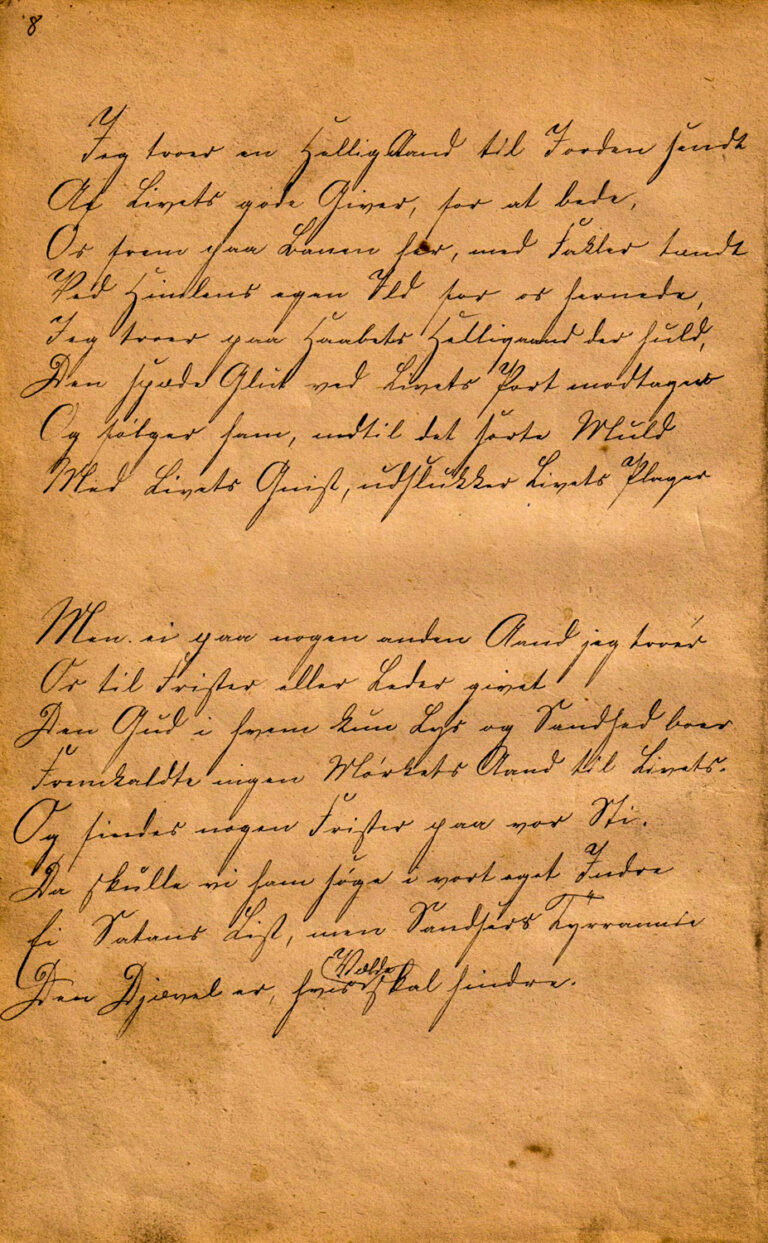 8
Jeg troer en HelligAand til Jorden sendt
Af Livets gode Giver, for at bede,
Os frem paa Banen her, med Fakler tændt
Ved Himlens egen Ild for os hernede,
Jeg troer paa Haabets Helligaand der huld,
Den spæde Glut ved Livets Port modtager
Og følger ham, indtil det sorte Muld
Med Livets Gnist, udslukker Livets Plager
Men ei paa nogen anden Aand jeg troer
Os til Frister eller Leder givet
Den Gud i hvem kun Lys og Sandhed boer
Fremkaldte ingen Mørkets Aand til Livet.
Og findes nogen Frister paa vor Sti.
Da skulle vi ham søge i vort eget Indre
Ei Satans List, men Sandsers Tyrannnie
Den Djævel er, hvis Vælde skal hindre.